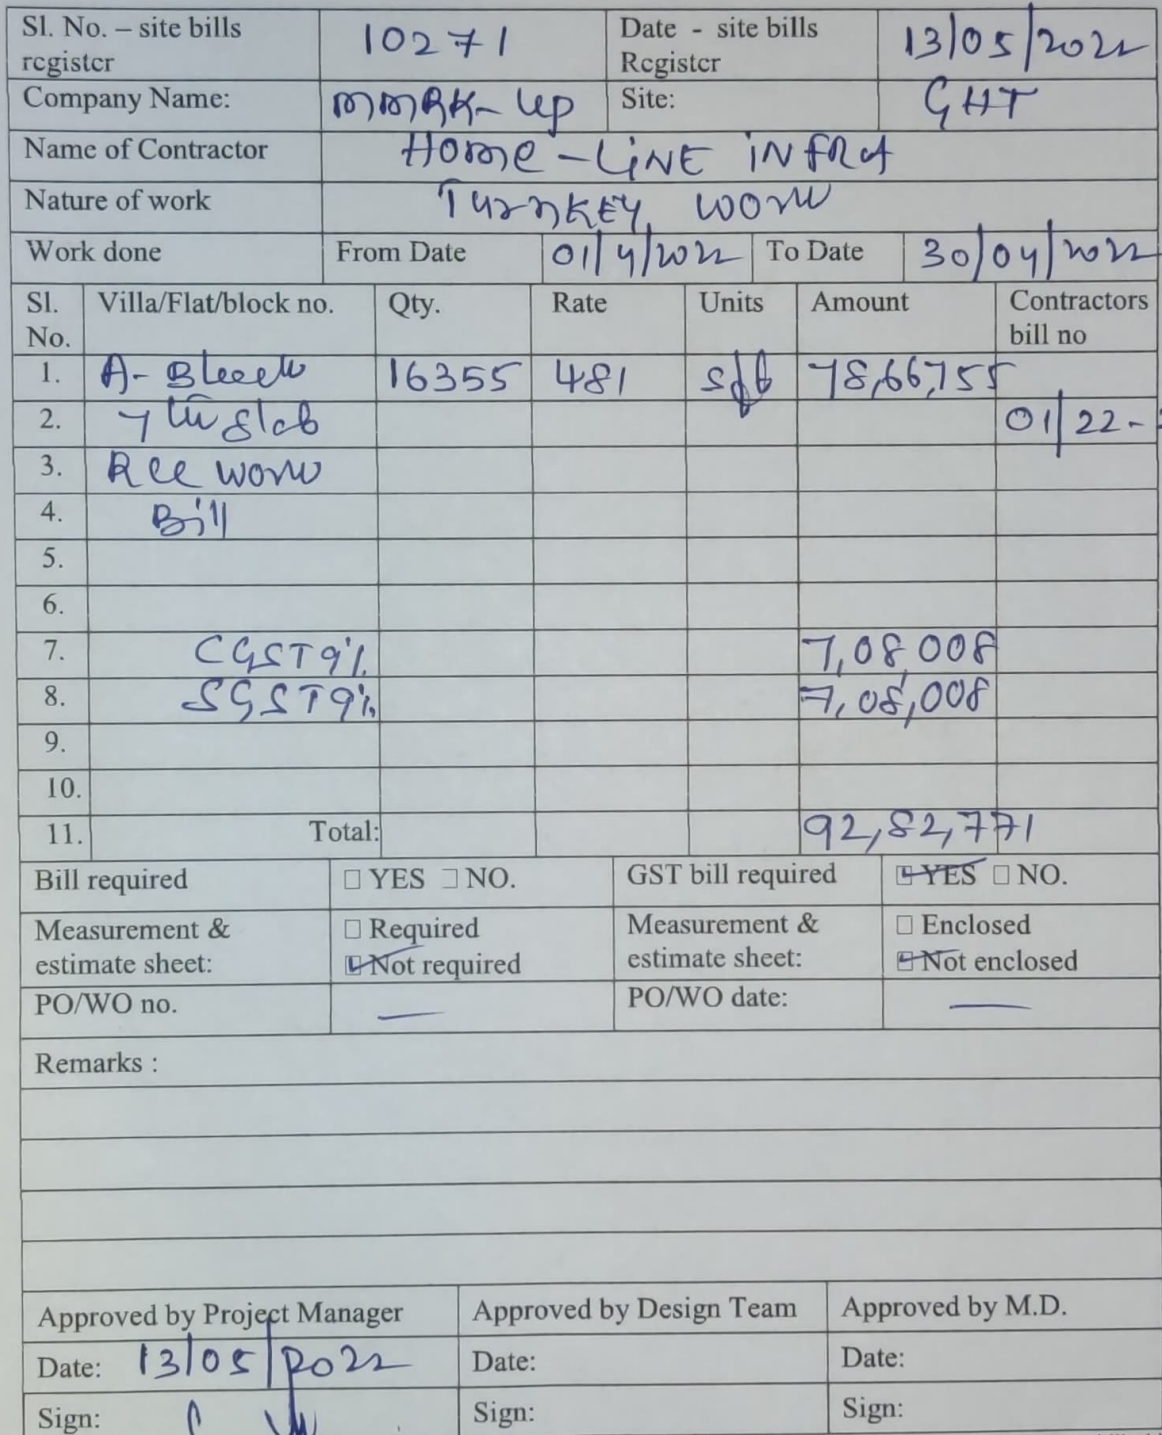 Sl. No. – site bills register 10271 Date - site bills Register 13/05/2022
Company Name: MMRK-UP Site: GHT
Name of Contractor HOME-LINE INFRA
Nature of work TURNKEY WORK
Work done From Date 01/4/2022 To Date 30/04/2022
Sl. No. Villa/Flat/block no. Qty. Rate Units Amount Contractors bill no
1. A-Block 16355 481 sft 78,66,755
2. 7th slab 01/22-
3. RCC work
4. Bill
5.
6.
7. CGST 9% 7,08,008
8. SGST 9% 7,08,008
9.
10.
11. Total: 92,82,771
Bill required □ YES □ NO. GST bill required ☑ YES □ NO.
Measurement & estimate sheet: □ Required ☑ Not required Measurement & estimate sheet: □ Enclosed ☑ Not enclosed
PO/WO no. — PO/WO date: —
Remarks :
Approved by Project Manager Approved by Design Team Approved by M.D.
Date: 13/05/2022 Date: Date:
Sign: Sign: Sign: